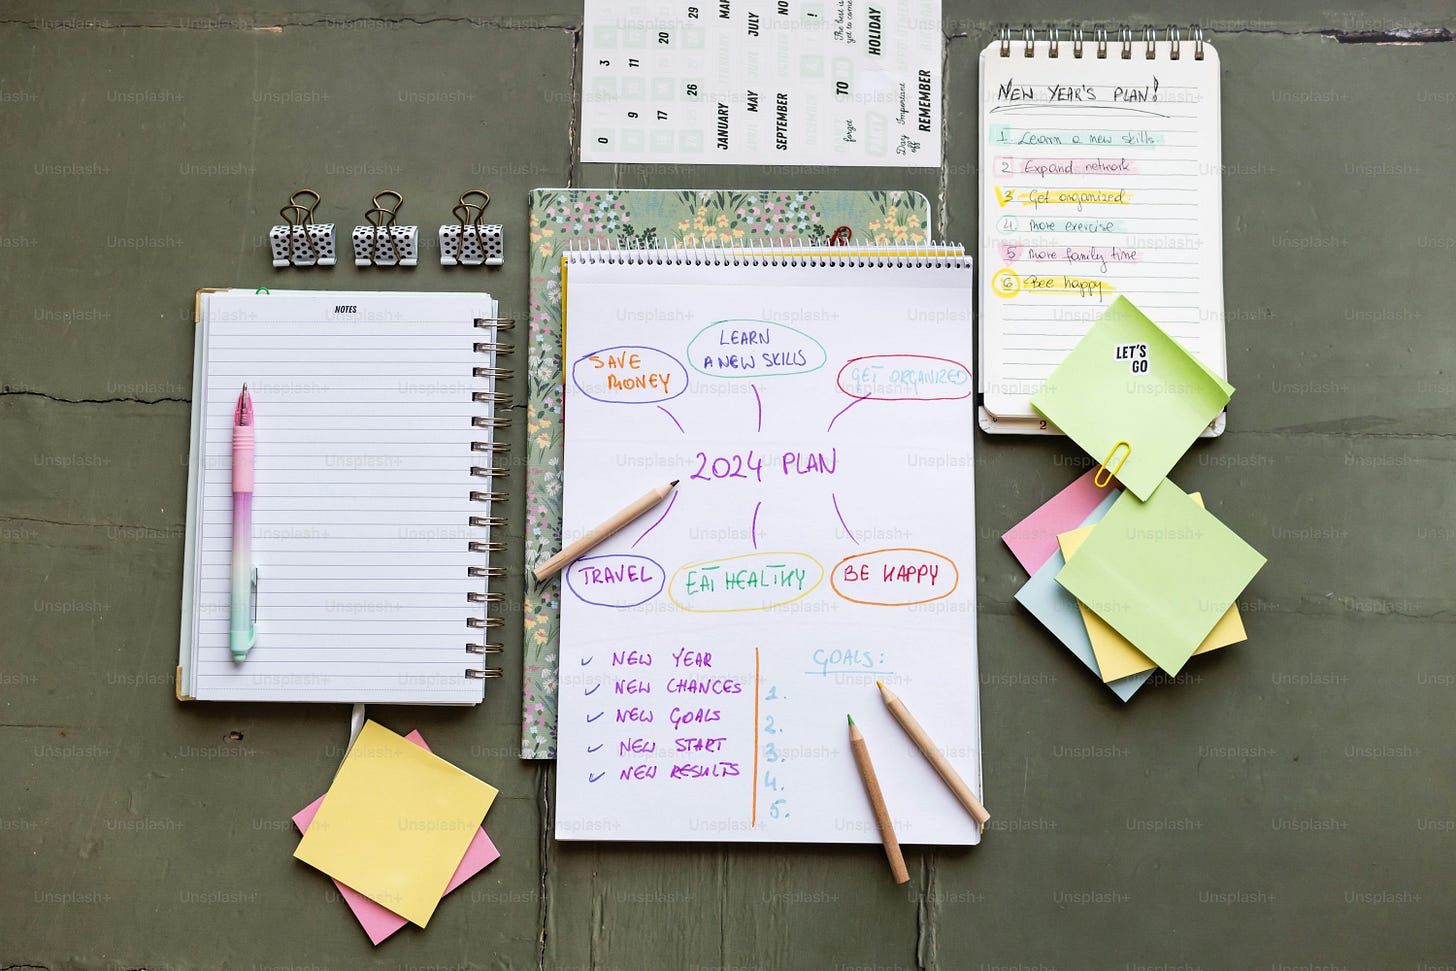 0 3
9 11
17 20
26 29
JANUARY MAR
MAY JULY
SEPTEMBER NO
!
forget TO
The best is yet to come
HOLIDAY
Day off Important
REMEMBER
NEW YEAR'S PLAN!
1. Learn a new skills.
2 Expand network
3 Get organized
4. more exercise
5 more family time
6 Bee happy
LET'S
GO
2
NOTES
SAVE
MONEY
LEARN
A NEW SKILLS
GET ORGANIZED
2024 PLAN
TRAVEL
EAT HEALTHY
BE HAPPY
✓ NEW YEAR
✓ NEW CHANCES
✓ NEW GOALS
✓ NEW START
✓ NEW RESULTS
GOALS:
1.
2.
3.
4.
5.
Unsplash+